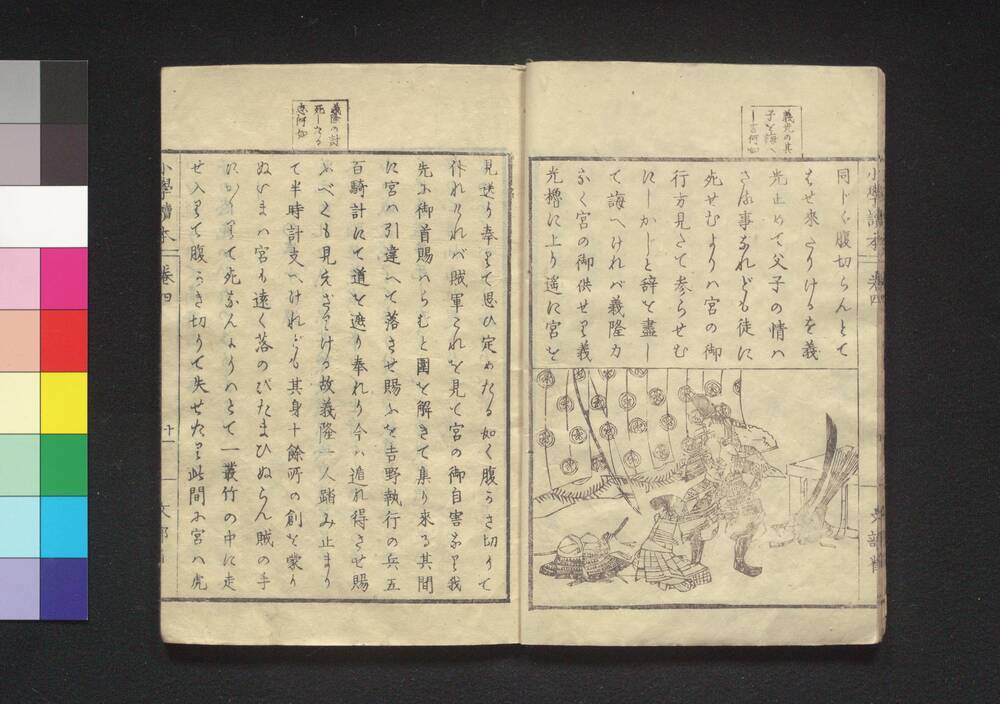 義光の其
子を誨へ
し言何如
同じく腹切らんとて
はせ來りけるを義
光止めて父子の情ハ
さる事なれども徒に
死せむよりハ宮の御
行方見さて参らせむ
にしかじと辞を盡し
て誨へけれバ義隆力
なく宮の御供せり義
光櫓に上り遥に宮を
小學讀本 卷四
義隆の討
死したる
志何如
見送り奉りて思ひ定めたる如く腹かき切りて
作れけれバ賊軍これを見て宮の御自害なり我
先に御首賜ハらむと圍を解きて集り来る其間
に宮ハ引違へて落させ賜ふを吉野執行の兵五
百騎計にて道を遮り奉れり今ハ遁れ得させ賜
ふべくも見えざりける故義隆一人踏み止まり
て半時計支へけれども其身十餘所の創を蒙り
ぬいまハ宮も遠く落のびたまひぬらん賊の手
にかゝりて死なんよりハとて一叢竹の中に走
せ入りて腹かき切りて失せたり此間に宮ハ虎
小學讀本 卷四
十一
文部省